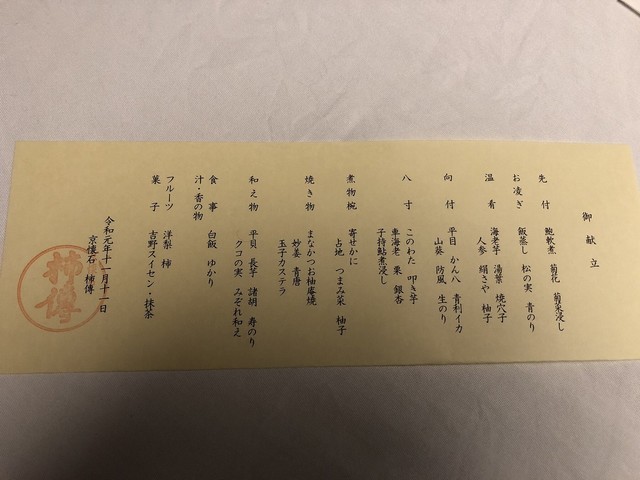 御献立
先付 鮑軟煮 菊花 菊菜浸し
お凌ぎ 飯蒸し 松の実 青のり
温肴 海老芋 湯葉 焼穴子
人参 絹さや 柚子
向付 平目 かん八 青利イカ
山葵 防風 生のり
八寸 このわた 叩き芋
車海老 栗 銀杏
子持鮎煮浸し
煮物椀 寄せかに
占地 つまみ菜 柚子
焼き物 まなかつお柚庵焼
妙姜 青唐
玉子カステラ
和え物 平貝 長芋 諸胡 寿のり
クコの実 みぞれ和え
食事 白飯 ゆかり
汁・香の物
フルーツ 洋梨 柿
菓子 吉野スイセン・抹茶
令和元年十一月十一日
京懐石 柿傳
柿傳